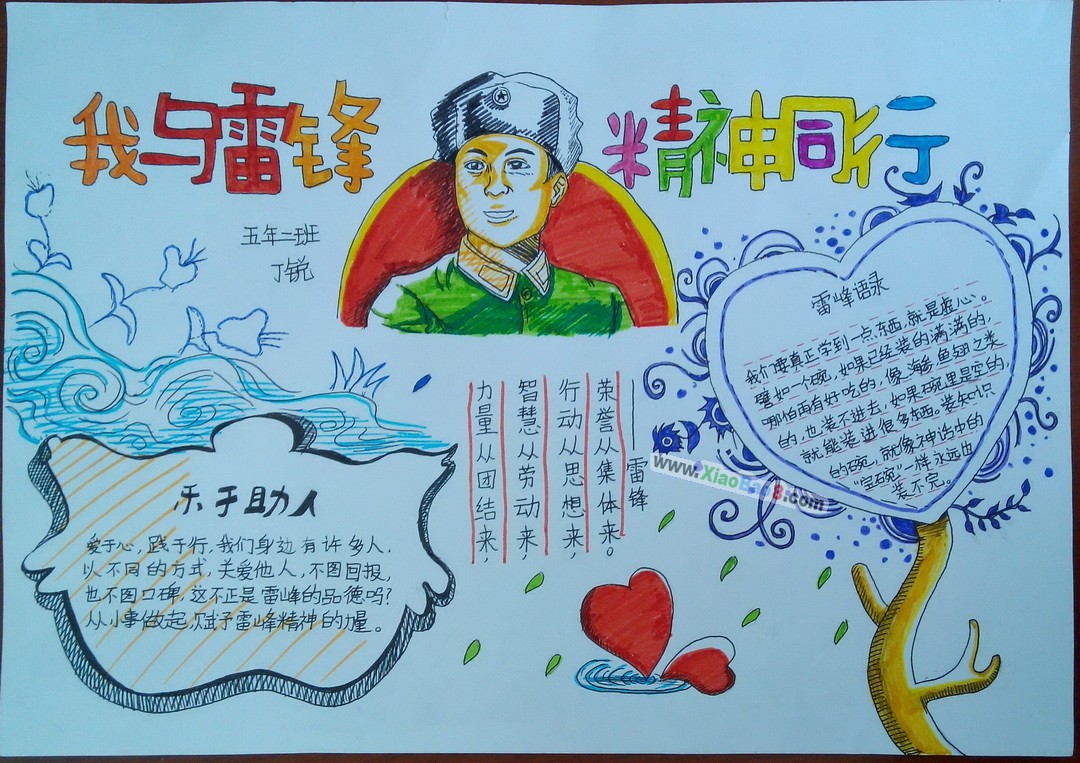 我与雷锋
精神同行
五年二班
丁锐
雷峰语录
我们要真正学到一点东西,就是虚心。
譬如一个碗,如果已经装的满满的,
哪怕再有好吃的,像海参鱼翅之类
的,也装不进去,如果碗里是空的,
就能装进很多东西。装知识
的碗,就像神话中的
“宝碗”一样永远也
装不完。
力量从团结来,
智慧从劳动来,
行动从思想来,
荣誉从集体来。
——雷锋
www.XiaoBao8.com
乐于助人
爱于心,践于行,我们身边有许多人.
以不同的方式,关爱他人,不图回报,
也不图口碑,这不正是雷峰的品德吗?
从小事做起,赋予雷峰精神的力量。